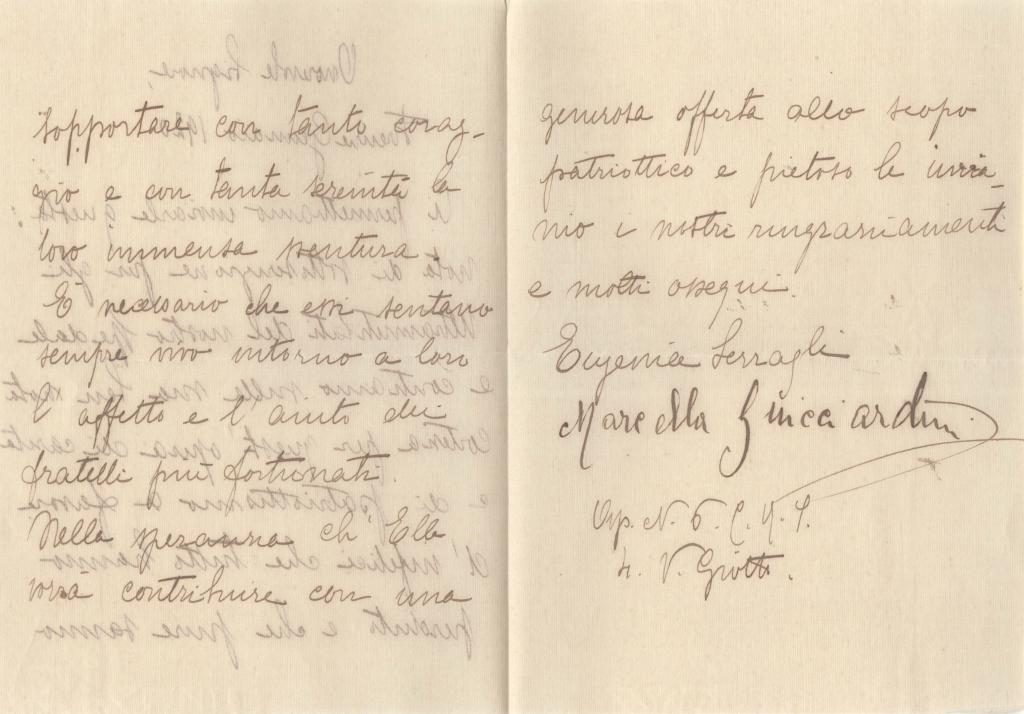 sopportare con tanto corag-
gio e con tanta serenità la
loro immensa sventura
È necessario che essi sentano
sempre vivo intorno a loro
l'affetto e l'aiuto dei
fratelli più fortunati.
Nella speranza ch'Ella
vorrà contribuire con una
generosa offerta allo scopo
patriottico e pietoso le invia-
mo i nostri ringraziamenti
e molti ossequi.
Eugenia Serragli
Marcella Guicciardini
Osp. N. 6. C. R. I.
V. Giotto.